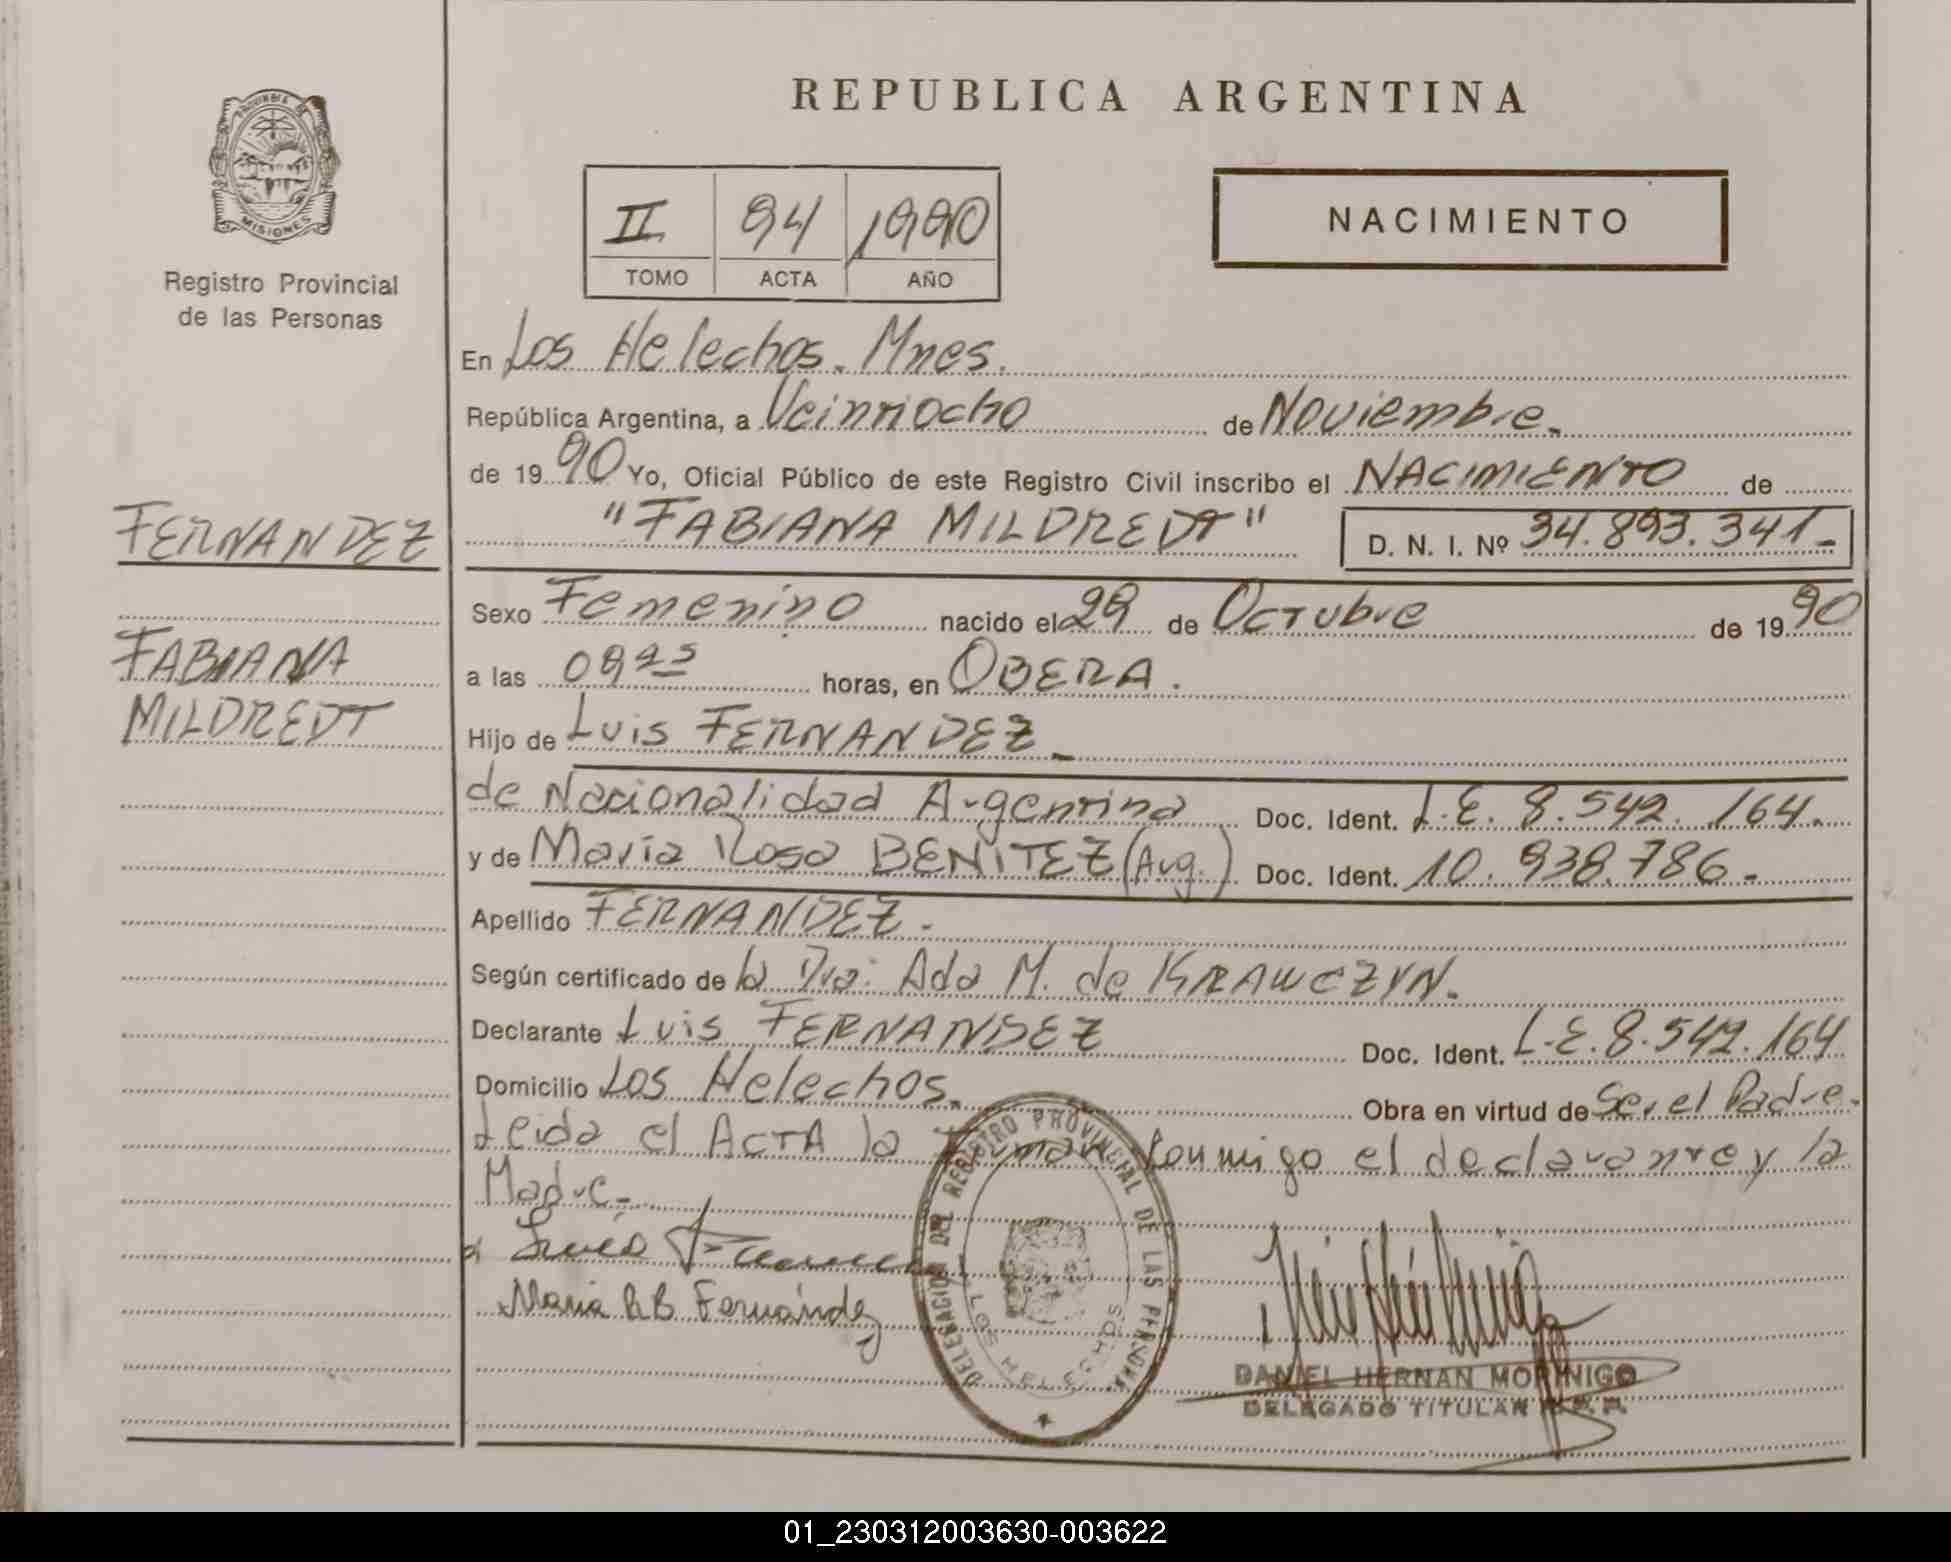 REPUBLICA ARGENTINA
PROVINCIA DE
MISIONES
Registro Provincial
de las Personas
II 94 1990
TOMO ACTA AÑO
NACIMIENTO
FERNANDEZ
FABIANA
MILDREDT
En Los Helechos. Mnes.
República Argentina, a Veintiocho de Noviembre.
de 1990 Yo, Oficial Público de este Registro Civil inscribo el NACIMIENTO de
"FABIANA MILDREDT" D. N. I. Nº 34.893.341.-
Sexo Femenino nacido el 29 de Octubre de 1990
a las 09 horas, en OBERA.
Hijo de Luis FERNANDEZ
de Nacionalidad Argentina Doc. Ident. L.E. 8.542.164.
y de María Rosa BENITEZ (Arg.) Doc. Ident. 10.938.786.-
Apellido FERNANDEZ.
Según certificado de la Dra: Ada M. de KRAWCZYN.
Declarante Luis FERNANDEZ Doc. Ident. L.E. 8.542.164
Domicilio Los Helechos. Obra en virtud de Ser el Padre.
Leida el ACTA la Firman Conmigo el declarante y la
Madre.-
Maria R B Fernández
DELEGACION DEL REGISTRO PROVINCIAL DE LAS PERSONAS
LOS HELECHOS
DANIEL HERNAN MORINIGO
DELEGADO TITULAR R.P.P.
01_230312003630-003622